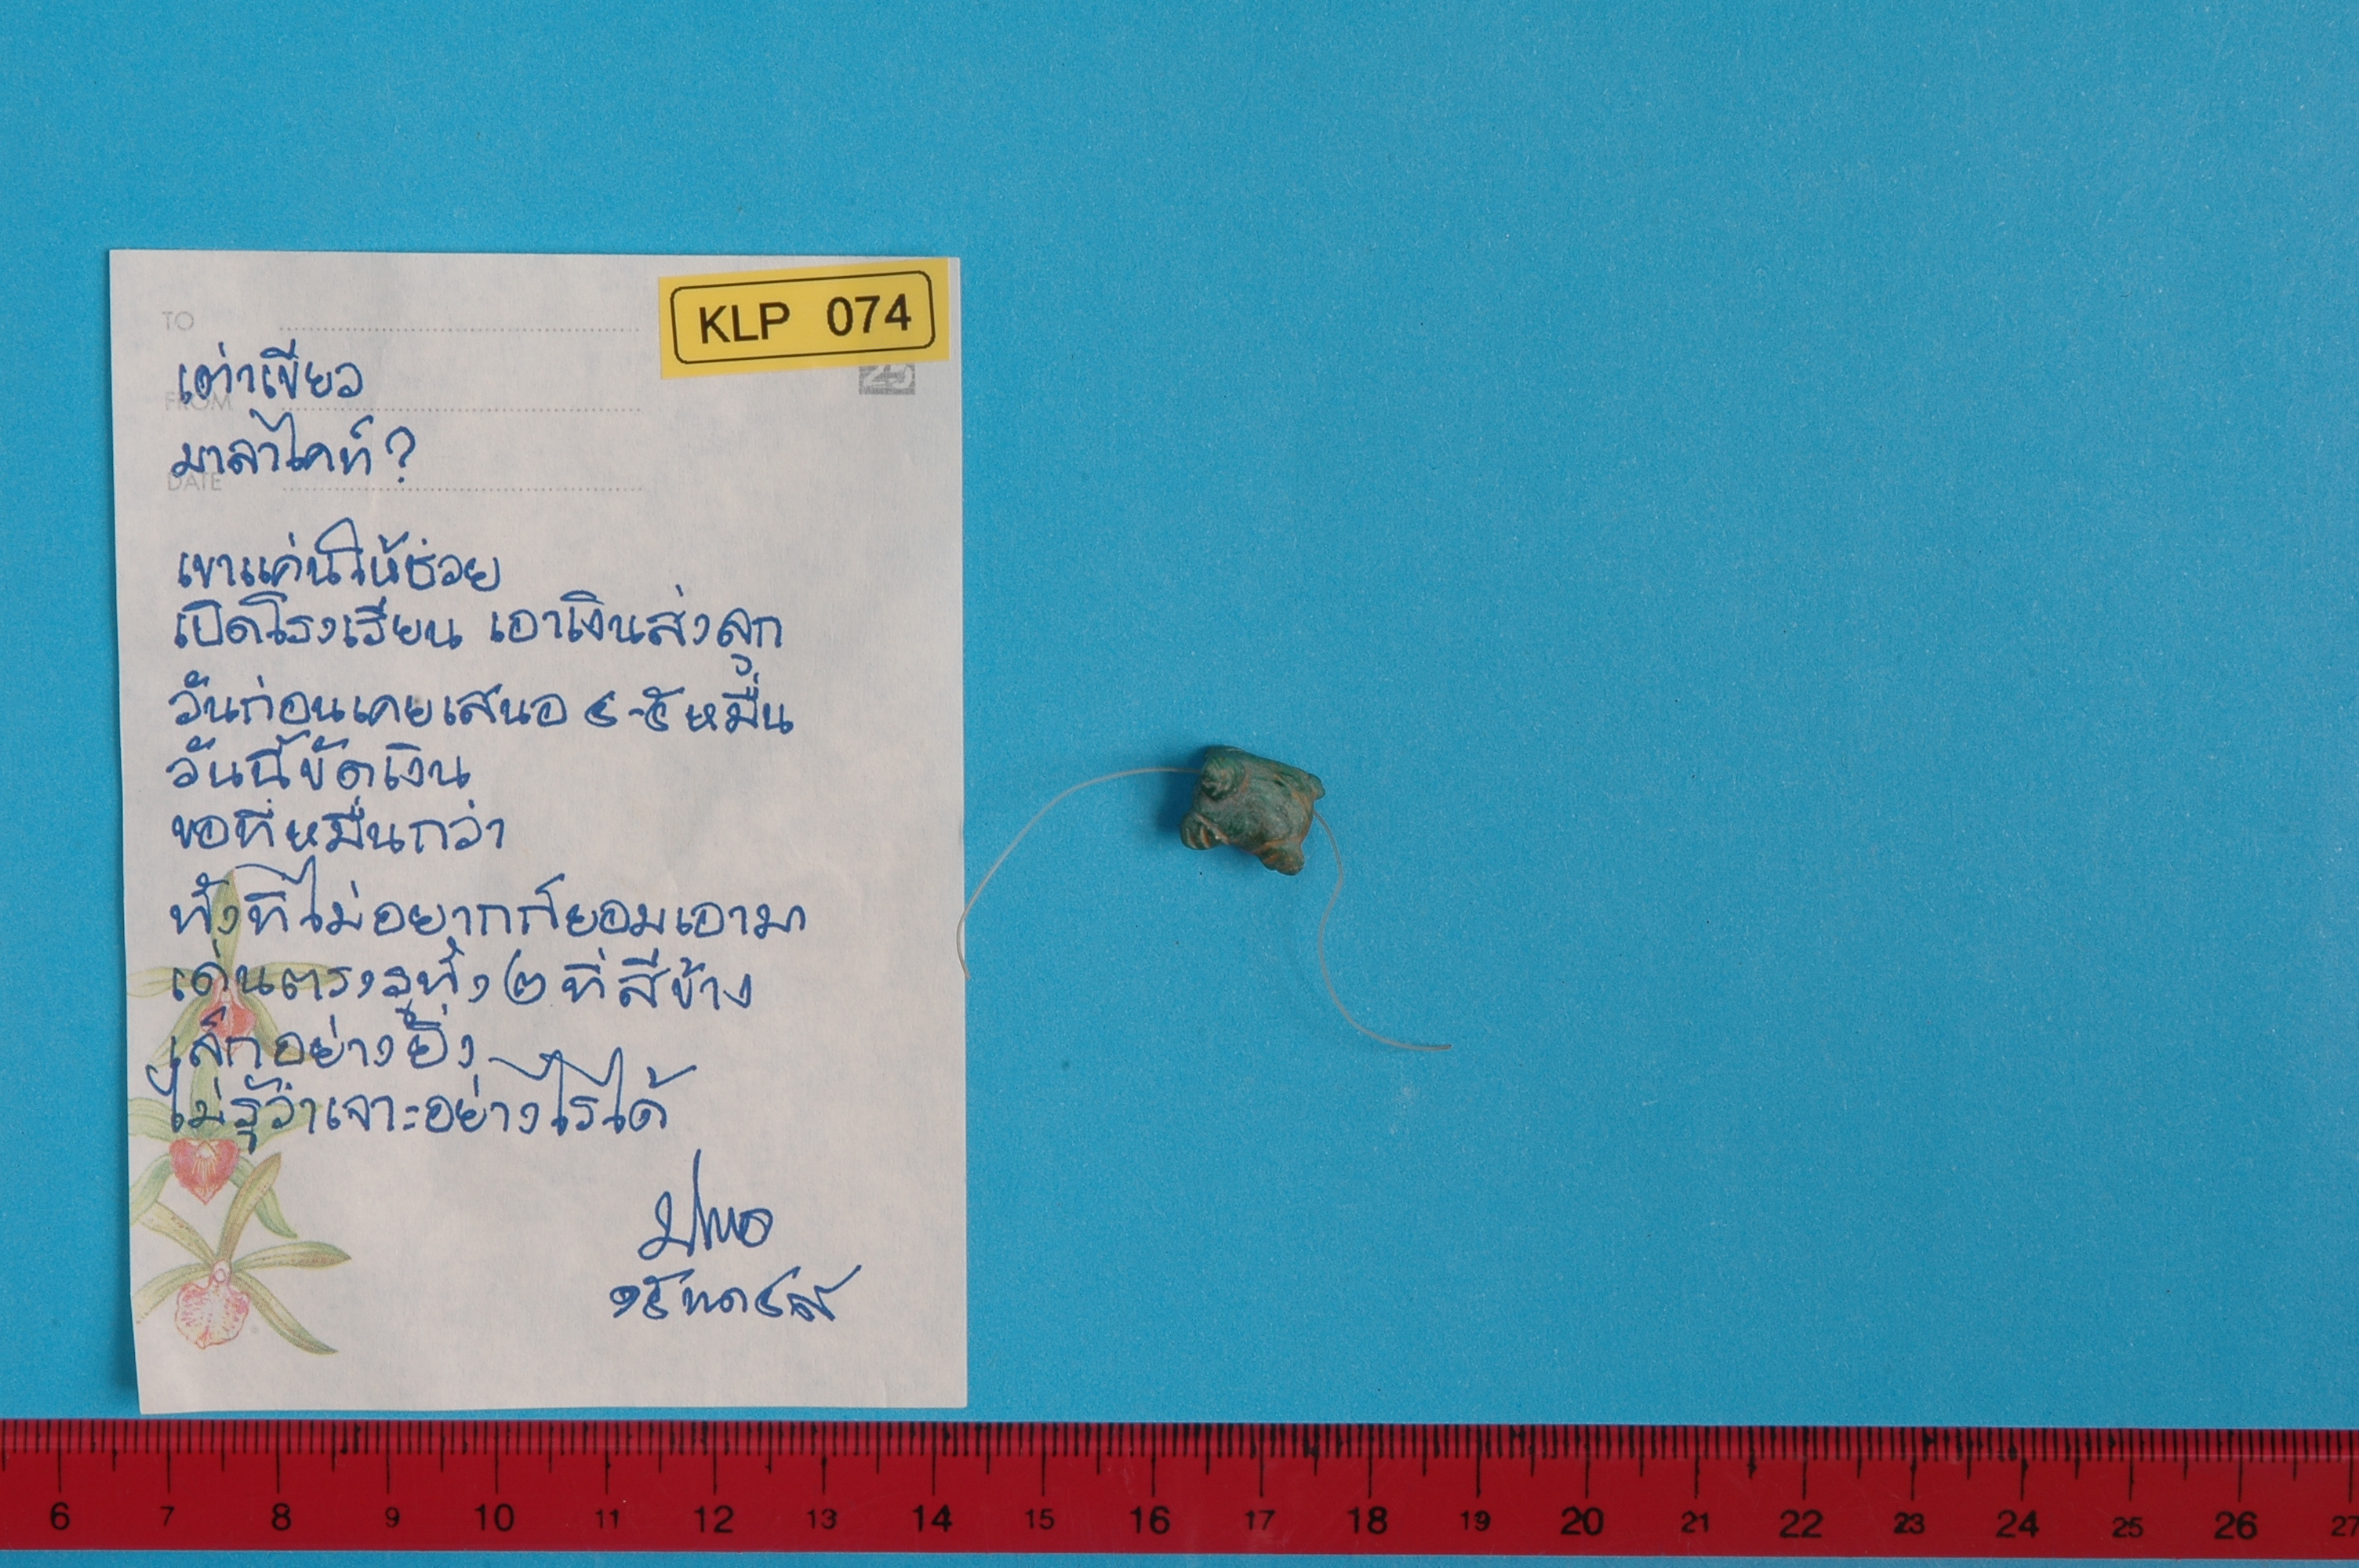 KLP 074
TO
25
เต่าเขียว
FROM
มาลาไคท์?
DATE
เขาแค่นให้ช่วย
เปิดโรงเรียน เอาเงินส่งลูก
วันก่อนเคยเสนอ ๔-๕ หมื่น
วันนี้ขัดเงิน
ขอที่หมื่นกว่า
ทั้งที่ไม่อยากก็ยอมเอามา
เด่นตรงรูทั้ง ๒ ที่สีข้าง
เล็กอย่างยิ่ง
ไม่รู้ว่าเจาะอย่างไรได้
๑๕ พค ๔๘
6 7 8 9 10 11 12 13 14 15 16 17 18 19 20 21 22 23 24 25 26 27